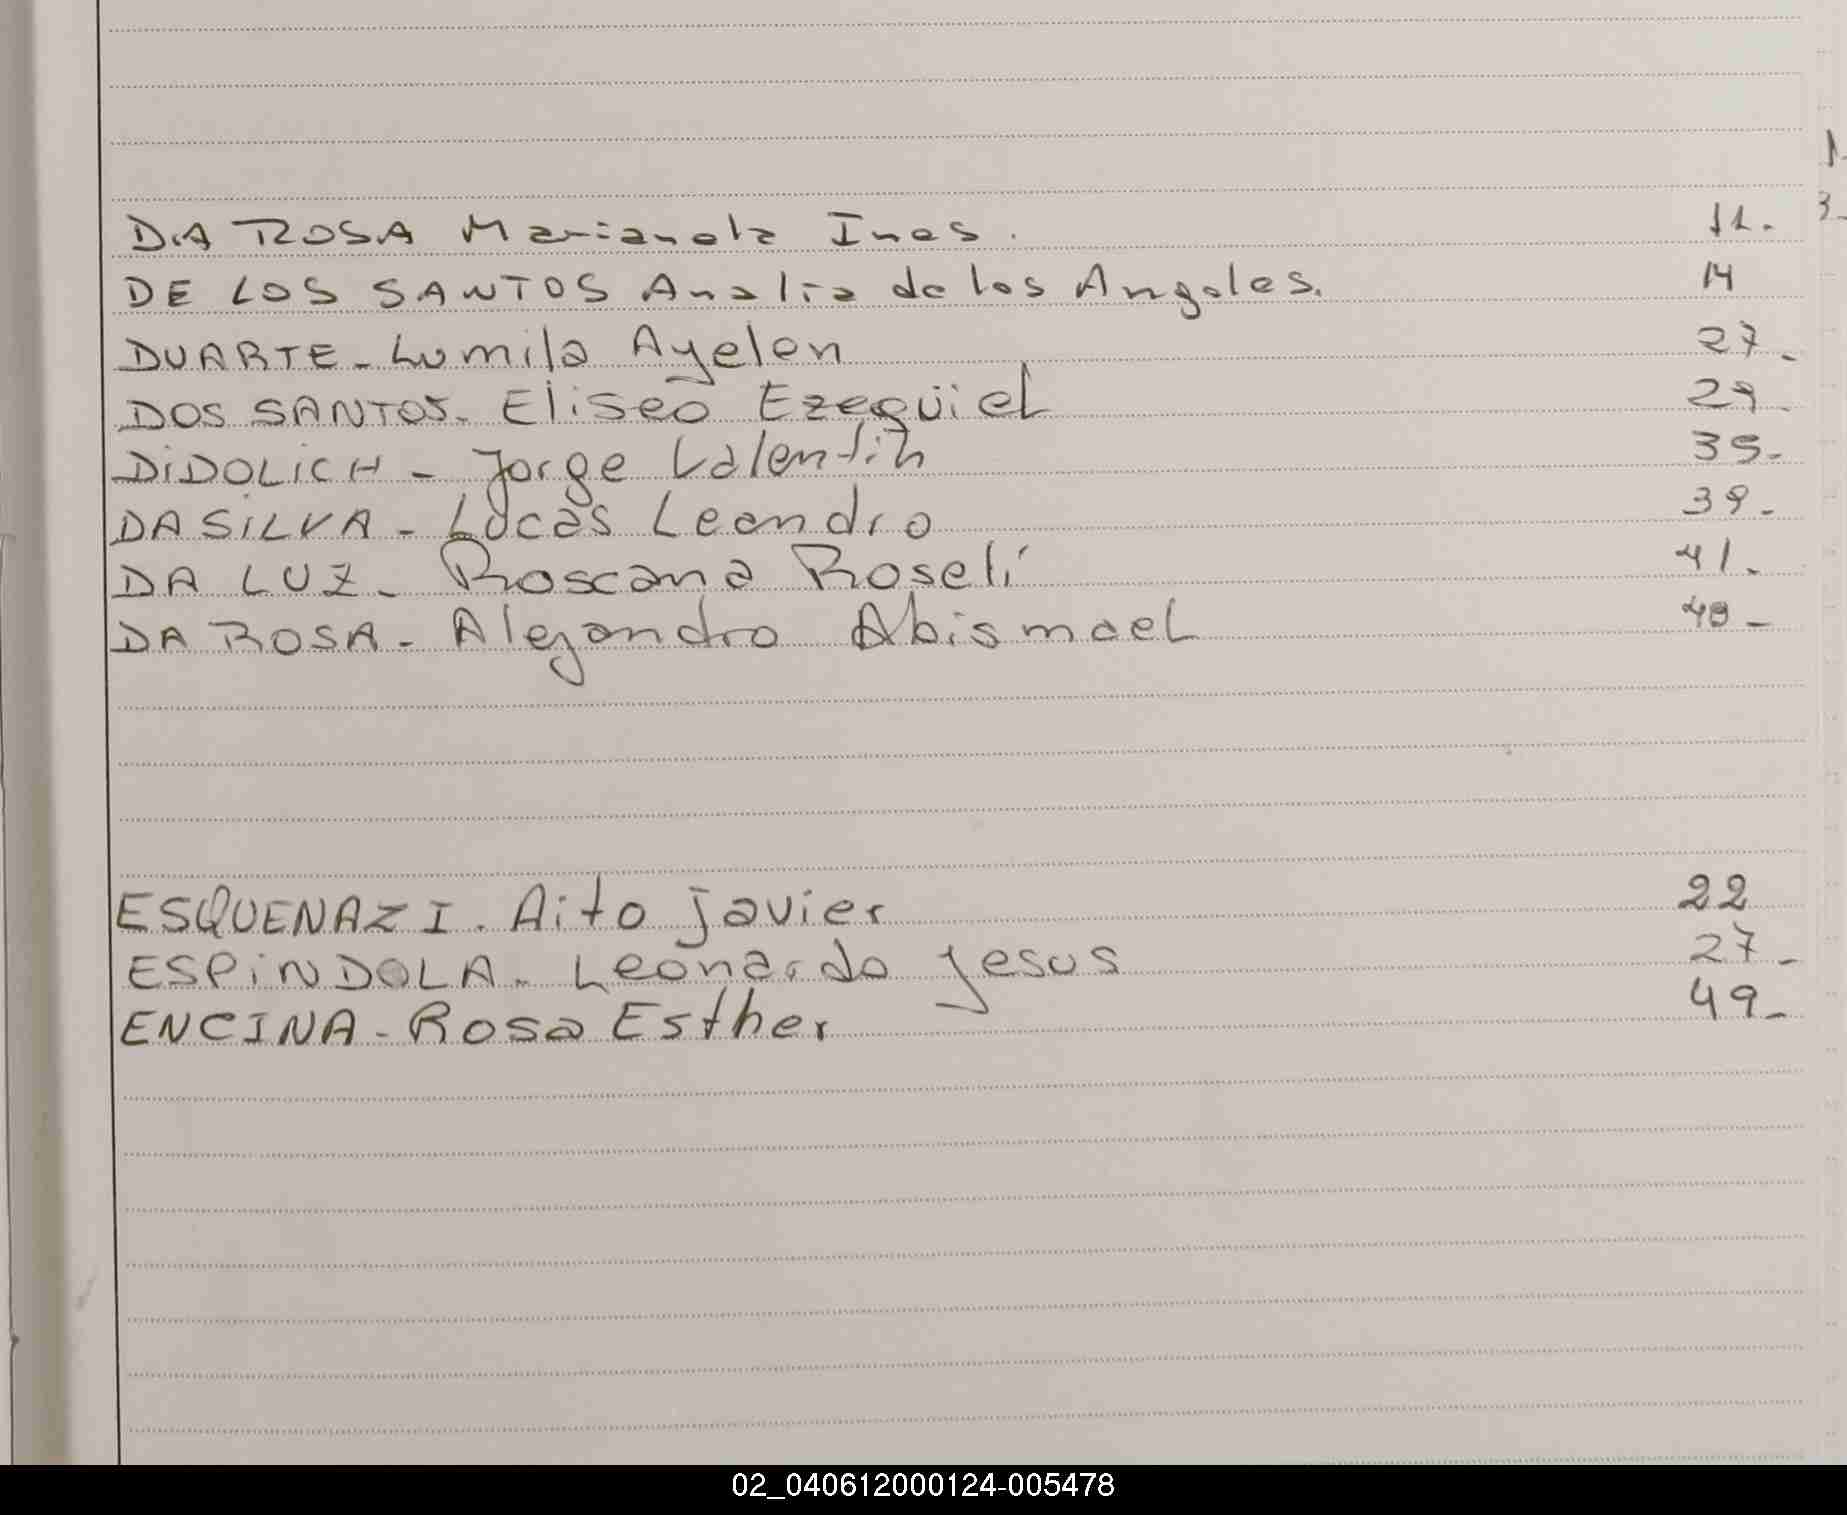 DA ROSA Marianela Ines. 11.
DE LOS SANTOS Analia de los Angeles. 14
DUARTE - Lumila Ayelen 27-
DOS SANTOS. Eliseo Ezequiel 29-
DiDOLiCH - Jorge Valentin 35-
DA SiLVA - Lucas Leandro 39-
DA LUZ - Roscana Roseli 41-
DA ROSA - Alejandro Abismael 48-
ESQUENAZI. Aito Javier 22
ESPiNDOLA - Leonardo Jesus 27-
ENCINA - Rosa Esther 49-
02_040612000124-005478